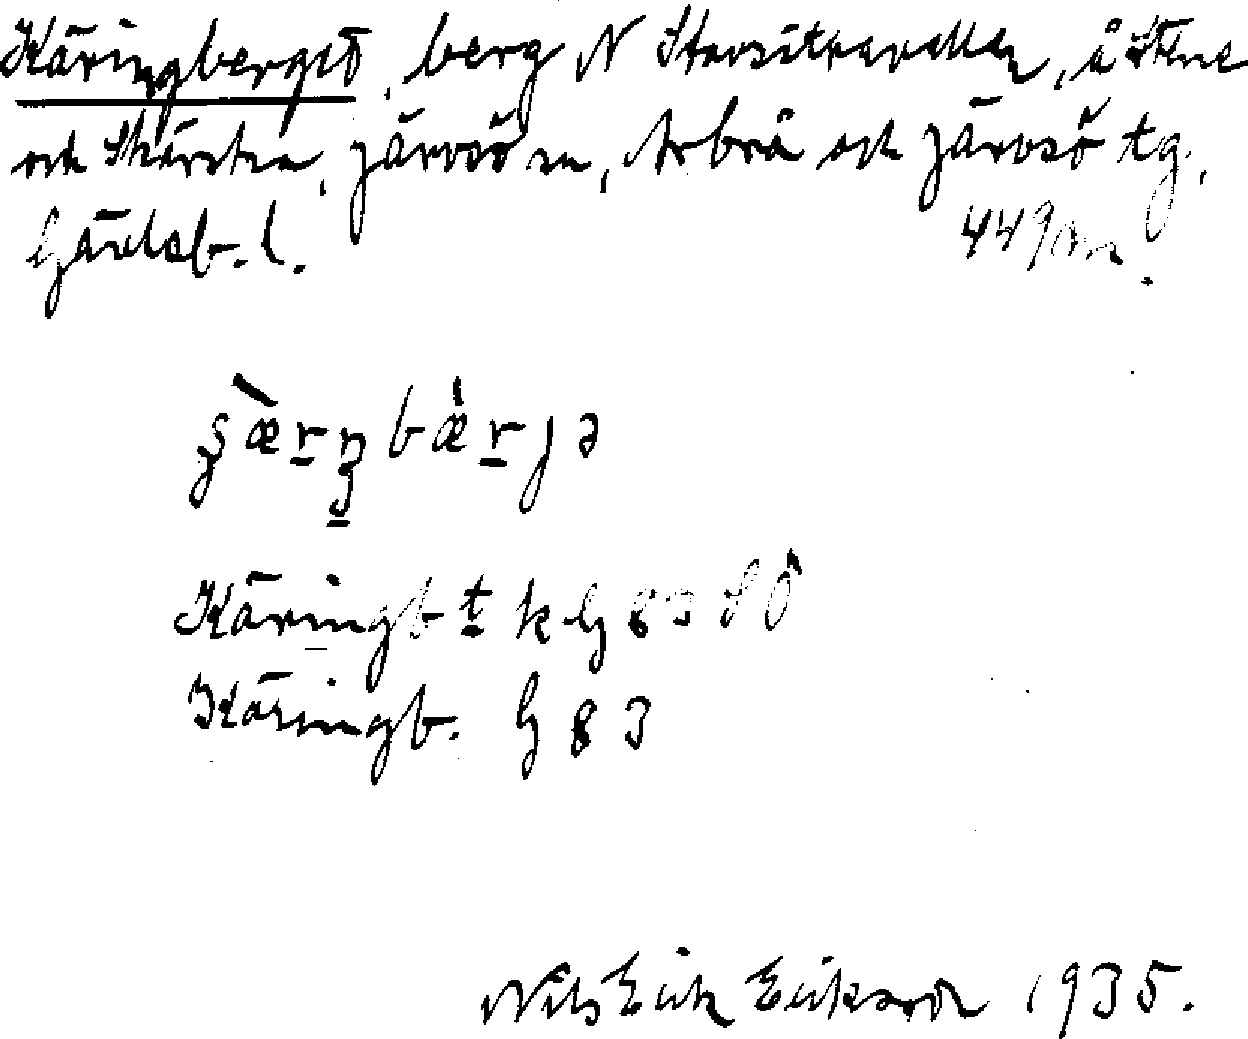 Käringberget, berg N Storsitvarvallen, å Stene
och Skästra, Järvsö sn, Arbrå och Järvsö tg,
Gävleb. l. 449 m.
bæ̀rjə
Käringbt k G 83 SÖ
Käringb. G 83
Nils Erik Eriksson 1935.